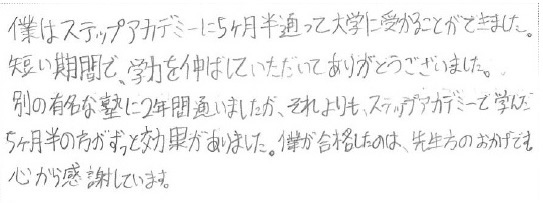 僕はステップアカデミーに5ヶ月半通って大学に受かることができました。
短い期間で、学力を伸ばしていただいてありがとうございました。
別の有名な塾に2年間通いましたが、それよりも、ステップアカデミーで学んだ
5ヶ月半の方がずっと効果がありました。僕が合格したのは、先生方のおかげです
心から感謝しています。